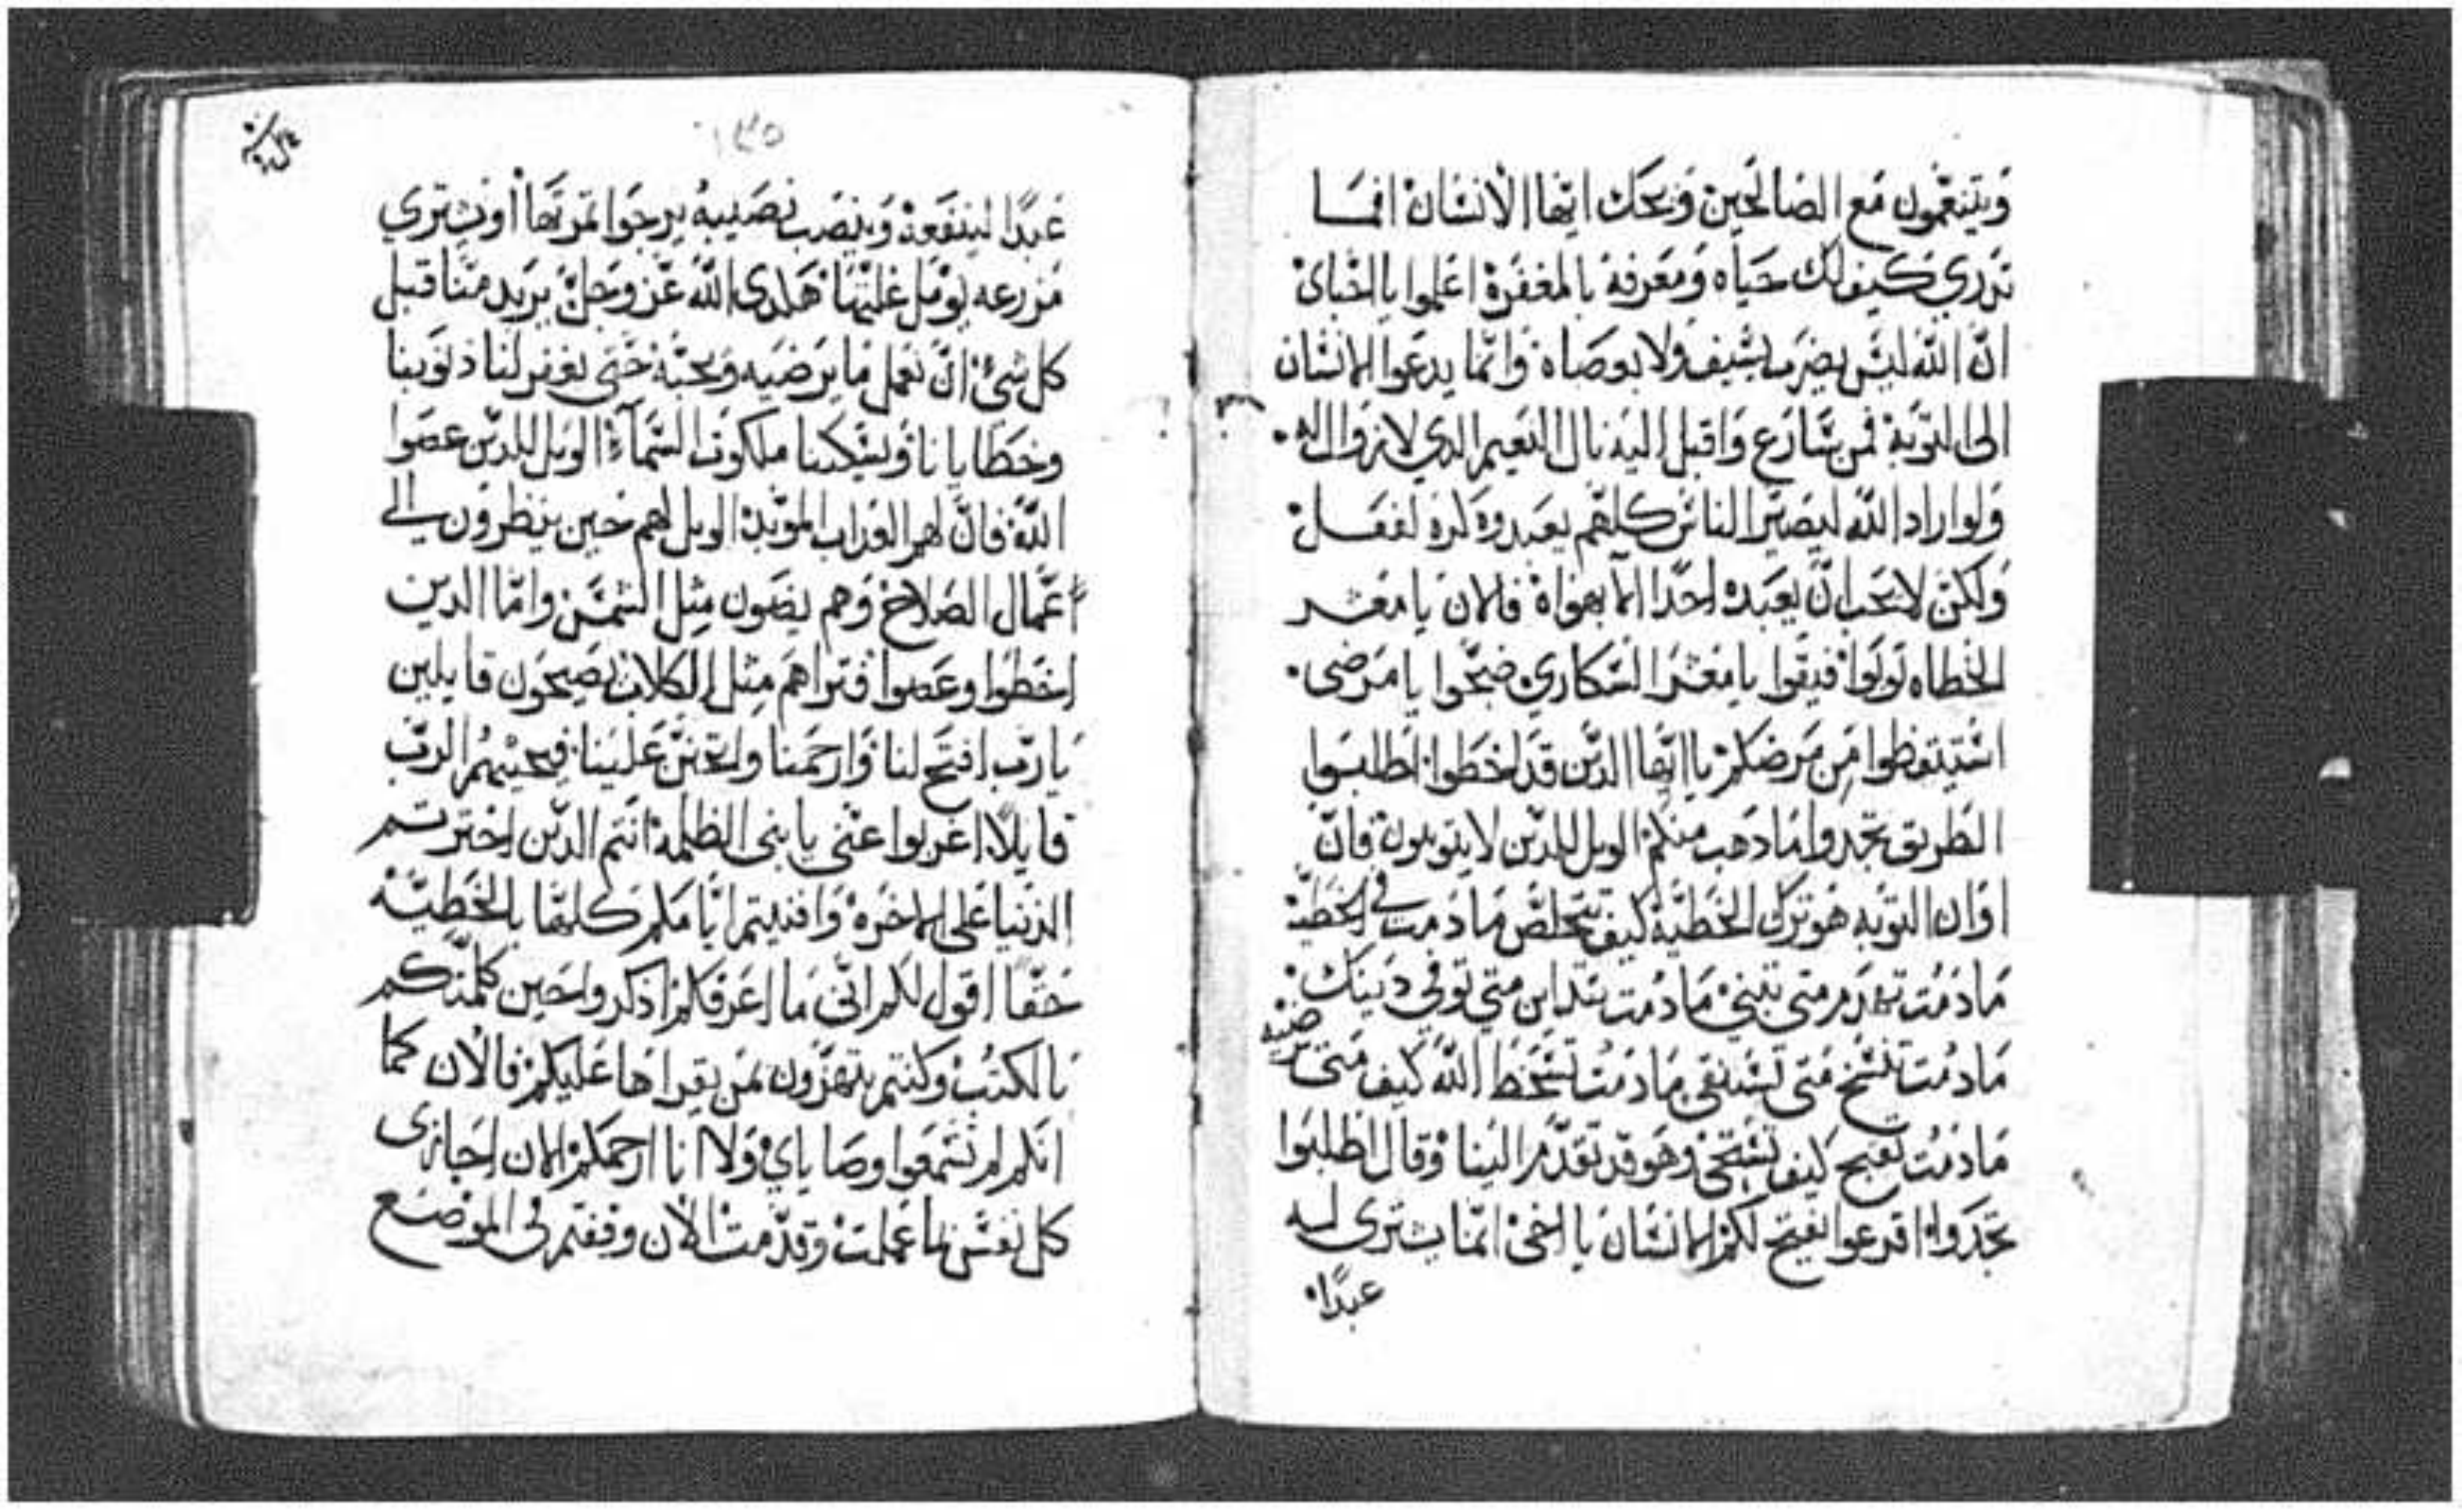 وَيتنعّمون مَع الصَالحَين وَيحَك ايّها الانسَان افمَا
تدري كيف لك حَياه وَمعَرفة بالمغفرَة اعَلموا يا اخَباي
انّ الله ليسَ يضرَب بسَيف وَلا بوصَاه وَانّما يدعَوا الانسَان
الى التوَبة فمن سَارَع وَاقبل اليَه نال النعَيم الدي لا زوَال له
وَلوا راد الله ليصَيّر الناسَ كلهَم يعَبدوه كرة لفعَل
وَلكن لا يحَب انّ يعَبده احَدًا الا بهواه فالان يا معَشر
الخطاه توبَوا فيقَوا يا معَشر السَكاري صَحّوا يا مرَضى
استيقظوا مَن مرَضكم يا ايّها الدَين قد اخطَوا اطلبَوا
الطَريق تجدوا مَا دهَب منكم الويل للدَين لا يتوبون فانّ
اوَان التوَبه هوَ ترك الخَطيّة كيف تتخلصّ مَا دمت في الخَطيّة
مَا دمَت تهدَم متى تبَني مَا دمُت تتداين متي توفي دَينك
مَا دمُت تتسَخ مَتى تسَتنقي مَا دمَت تسَخط الله كيف مَتى ترضيه
مَا دمُت تقبَح كيف تسَتحَي وَهو قد تقدّم الينا وَقال اطلبَوا
تجدَوا اقرعوا يفتح لكم الانسَان يا اخي انّما يشتري له
عبدًا
١٣٥
عَبدًا لينفعَة وَينصَب نصَيبهُ يرجَوا ثمرَتها اوَ يشتري
مزرعه يومَل غليّتها هكدى الله عَز وجَلّ يريَد منّا قبل
كل شيَ انّ نعَمل مَا يرَضيه وَيحبّه حَتى يغفر لنا دنوَبنا
وخطَايانا وَيسَكننا ملكوَت السَماء الويل للدَين عصَوا
الله فانّ لهم العدَاب الموبّد الويل لهم حَين ينظروَن الي
اعَمال الصَلاح وَهم يضَون مِثل الشمسَ وامّا الدين
اخَطوا وعَصوا فتراهم مِثل الكلاب يصَيحَون قايلين
يَا ربّ افتَح لنا وَارحَمنا واتحَنن عَلينا فيجَيبهُم الربّ
قايلاً اغربوا عنّي يا بني الظلمَة انتم الدَين اخترتم
الدنيا عَلى الاخرَة وَافنيتم ايّامكم كلهّا بالخَطيّة
حَقًا اقول لكم انّي مَا اعَرفكم ادكروا حَين كلمّتكم
بَالكتُب وكنتم تتهزون بمَن يقراهَا عَليكم فالان كما
انكم لم تسَمعوا وصَاياي وَلا انا ارحمكم الان اجَازى
كل نفسَ بما عَملت وَقدّمت الان وقفتم في الموضَع